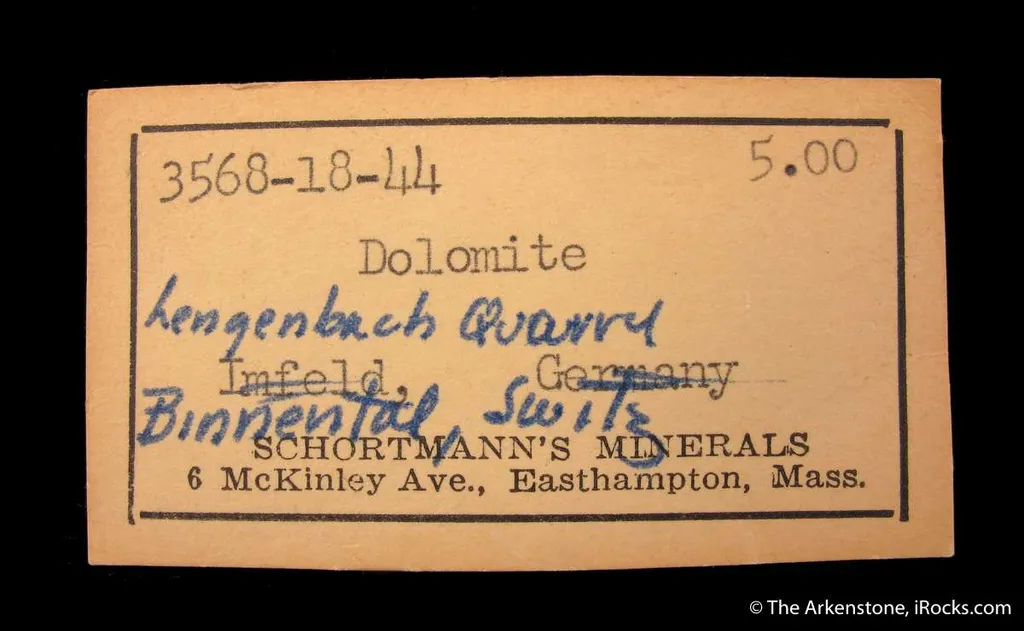 3568-18-44 5.00
Dolomite
Lengenbach Quarry
Imfeld, Germany
Binnental, Switz
SCHORTMANN'S MINERALS
6 McKinley Ave., Easthampton, Mass.
© The Arkenstone, iRocks.com